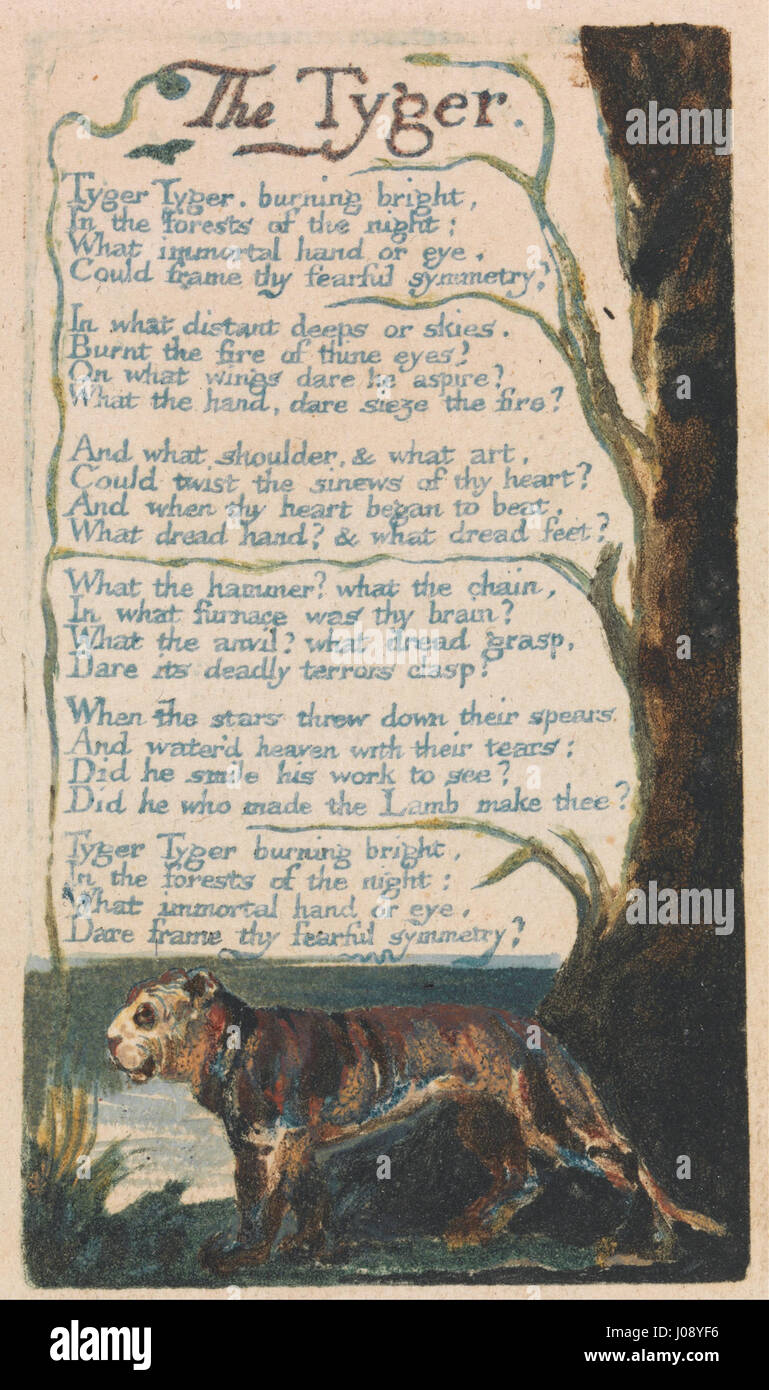 The Tyger.
Tyger Tyger. burning bright,
In the forests of the night:
What immortal hand or eye.
Could frame thy fearful symmetry?
In what distant deeps or skies.
Burnt the fire of thine eyes?
On what wings dare he aspire?
What the hand, dare sieze the fire?
And what shoulder, & what art,
Could twist the sinews of thy heart?
And when thy heart began to beat,
What dread hand? & what dread feet?
What the hammer? what the chain,
In what furnace was thy brain?
What the anvil? what dread grasp,
Dare its deadly terrors clasp!
When the stars threw down their spears
And water'd heaven with their tears:
Did he smile his work to see?
Did he who made the Lamb make thee?
Tyger Tyger burning bright,
In the forests of the night:
What immortal hand or eye,
Dare frame thy fearful symmetry?
alamy
alamy
alamy
a
a
a
a
alamy
Image ID: J08YF6
www.alamy.com